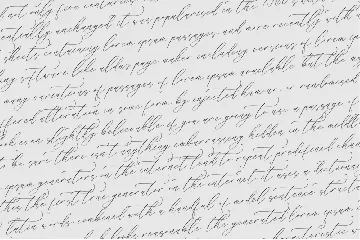 not only five centuries
essentially unchanged it was popularised in the 1960s
sheets containing lorem ipsum passages and more recently with
software like aldus pagemaker including versions of lorem
many variations of passages of lorem ipsum available but the
suffered alteration in some form by injected humour or randomised
look even slightly believable if you are going to use a passage of
to be sure there isn't anything embarrassing hidden in the middle
ipsum generators on the internet tend to repeat predefined
this the first true generator on the internet it uses a dictionary
latin words combined with a handful of model sentence
looks reasonable the generated lorem ipsum